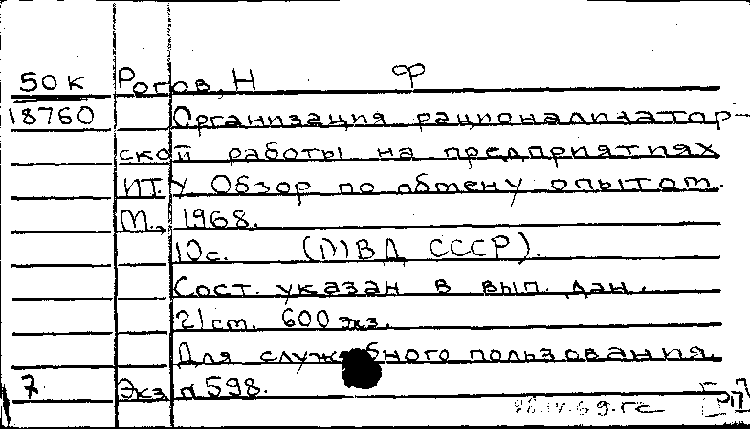 50к Рогов, Н Ф
18760 Организация рационализатор-
ской работы на предприятиях
ИТУ Обзор по обмену опытом.
М., 1968.
10с. (МВД СССР).
Сост. указан в вып. дан.
21см. 600 экз.
Для служебного пользования.
7 Экз n 598.
69.гс РП